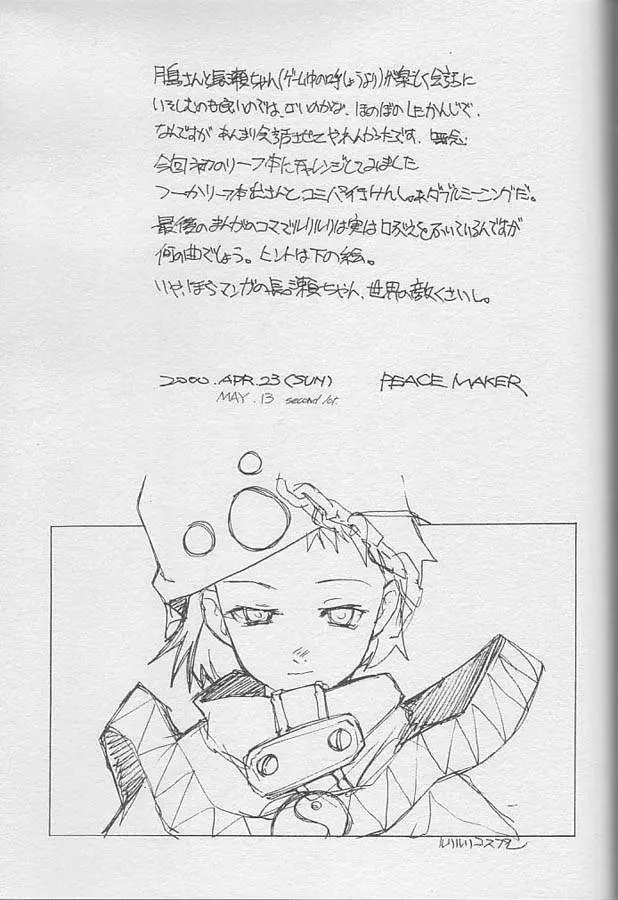 月島さんと長瀬ちゃん(ゲーム中の呼しょうより)が楽しく会話に
いそしむのも良いのでは、ないのかな、ほのぼのしたかんじで、
なんですが あんまり会話させてやれんかったです。無念
今回初のリーフ本にチャレンジしてみました
つーかリーフ本むさんと、コミパ
ダブルミーニングだ。
最後のまんがのコマでルリルリは実は口ぶえをふいているんですが
何の曲でしょう。ヒントは下の絵。
いや、ほらマンガの長瀬ちゃん、世界の敵くさいし。
2000.APR.23(SUN) PEACE MAKER
MAY.13 second
ルリルリコスプレ